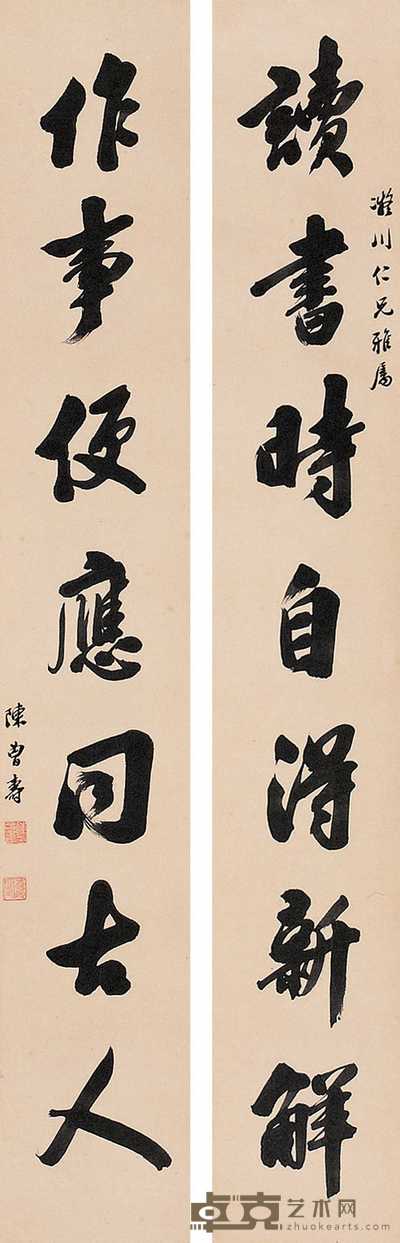 讀書時自得新解
凝川仁兄雅屬
作事便應同古人
陳曾壽
卓克艺术网
zhuokearts.com